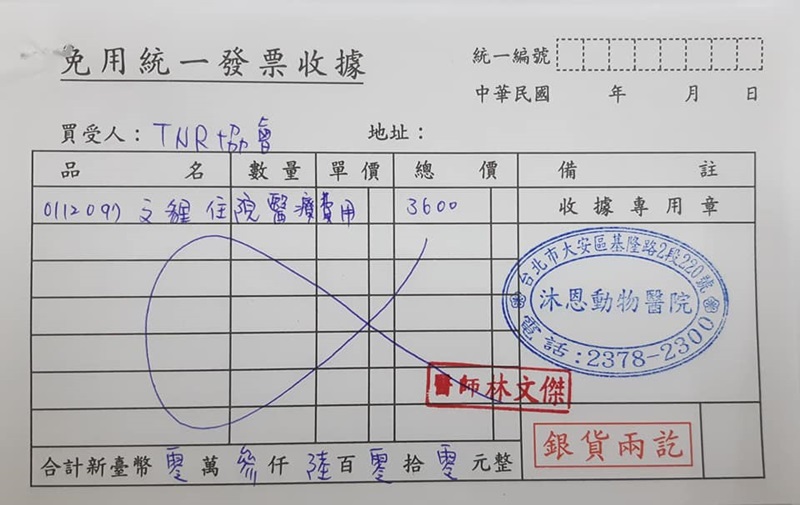 免用統一發票收據
統一編號
中華民國 年 月 日
買受人：TNR協會 地址：
品名 數量 單價 總價 備註
0112097 文貍 住院醫療費用 3600 收據專用章
台北市大安區基隆路2段220號
沐恩動物醫院
電話:2378-2300
醫師林文傑
銀貨兩訖
合計新臺幣零萬參仟陸百零拾零元整